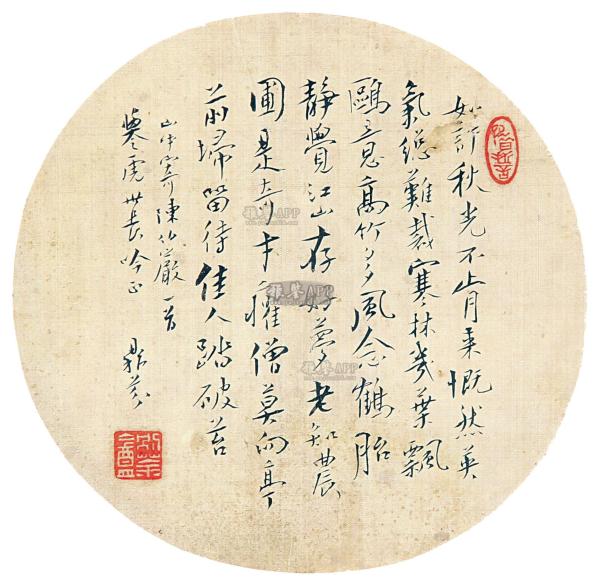 如許秋光不肯來慨然英
氣總難裁寒林幾葉飄
鷗意高竹多風念鶴胎
靜覺江山存好夢老知農
圃是奇才僧莫向亭
前掃留待佳人踏破苔
山中寄陳伯嚴一首
虎世長吟正 鼎芬
雅昌APP